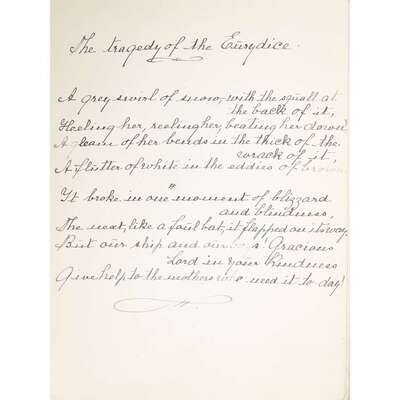 The tragedy of the Eurydice.
A grey swirl of snow, with the squall at
the back of it,
Heeling her, reeling her, beating her down!
A gleam of her bends in the thick of the
wrack of it,
A flutter of white in the eddies of brown.
It broke in one moment of blizzard
and blindness,
The next, like a foul bat, it flapped on its way
But our ship and our boys! Gracious
Lord in your kindness
Give help to the mothers who need it to day!